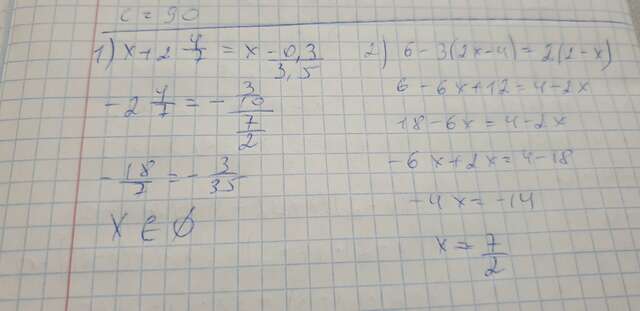 c = 90
1) x + 2 4/7 = x - 0,3/3,5
- 2 4/7 = - 3/10 / 7/2
- 18/7 = - 3/35
x ∈ ∅
2) 6 - 3(2x - 4) = 2(2 - x)
6 - 6x + 12 = 4 - 2x
18 - 6x = 4 - 2x
- 6x + 2x = 4 - 18
- 4x = - 14
x = 7/2